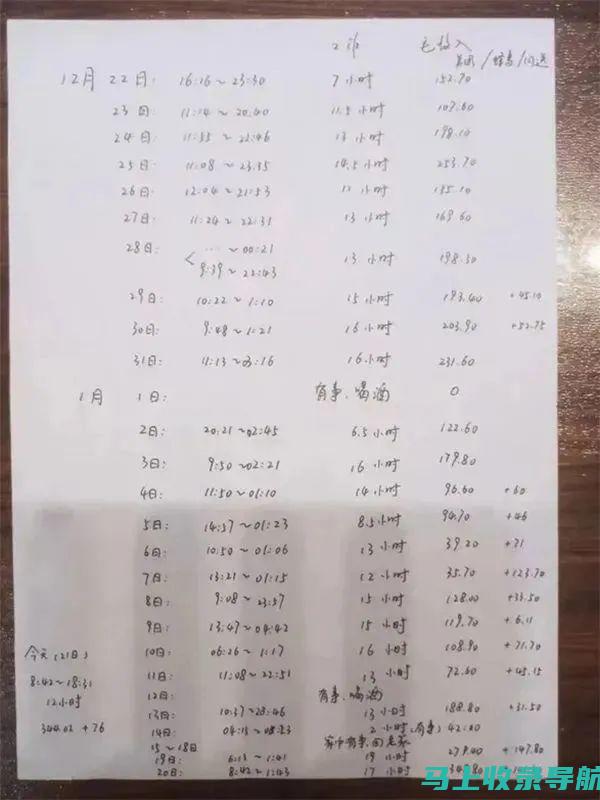 工作 毛收入
美团 / 蜂鸟 / 闪送
12月 22日: 16:16~23:30 7小时 152.70
23日: 11:14~20:40 11.5小时 107.60
24日: 11:55~22:46 13小时 198.10
25日: 11:08~23:35 14.5小时 253.70
26日: 12:04~21:53 11小时 135.10
27日: 11:24~22:31 13小时 169.60
28日: < ...~00:21
9:39~22:43 13小时 198.30
29日: 10:22~1:10 15小时 193.40 +45.10
30日: 9:48~1:21 16小时 203.90 +52.75
31日: 11:13~03:16 16小时 231.60
1月 1日: 有事、喝酒 0
2日: 20:21~02:45 6.5小时 122.60
3日: 9:50~02:21 16小时 179.80
4日: 11:50~01:10 14小时 96.60 +60
5日: 14:37~01:23 8.5小时 94.70 +46
6日: 10:50~01:06 13小时 39.20 +71
7日: 13:21~01:15 12小时 35.70 +123.70
8日: 9:08~23:57 15小时 128.00 +33.50
9日: 13:47~04:42 15小时 119.70 +6.11
10日: 06:26~1:17 16小时 108.90 +71.70
11日: 11:08~22:51 13小时 72.60 +45.15
12日: 有事、喝酒
13日: 10:37~23:46 13小时 188.80 +31.50
14日: 04:15~08:23 2小时(有事) 42.00
15~18日 家中有事、回老家
19日: 6:13~1:41 19小时 279.00 +147.80
20日: 8:42~1:43 17小时
今天(21日)
8:42~18:31
12小时
344.02 +76
马上收录导航